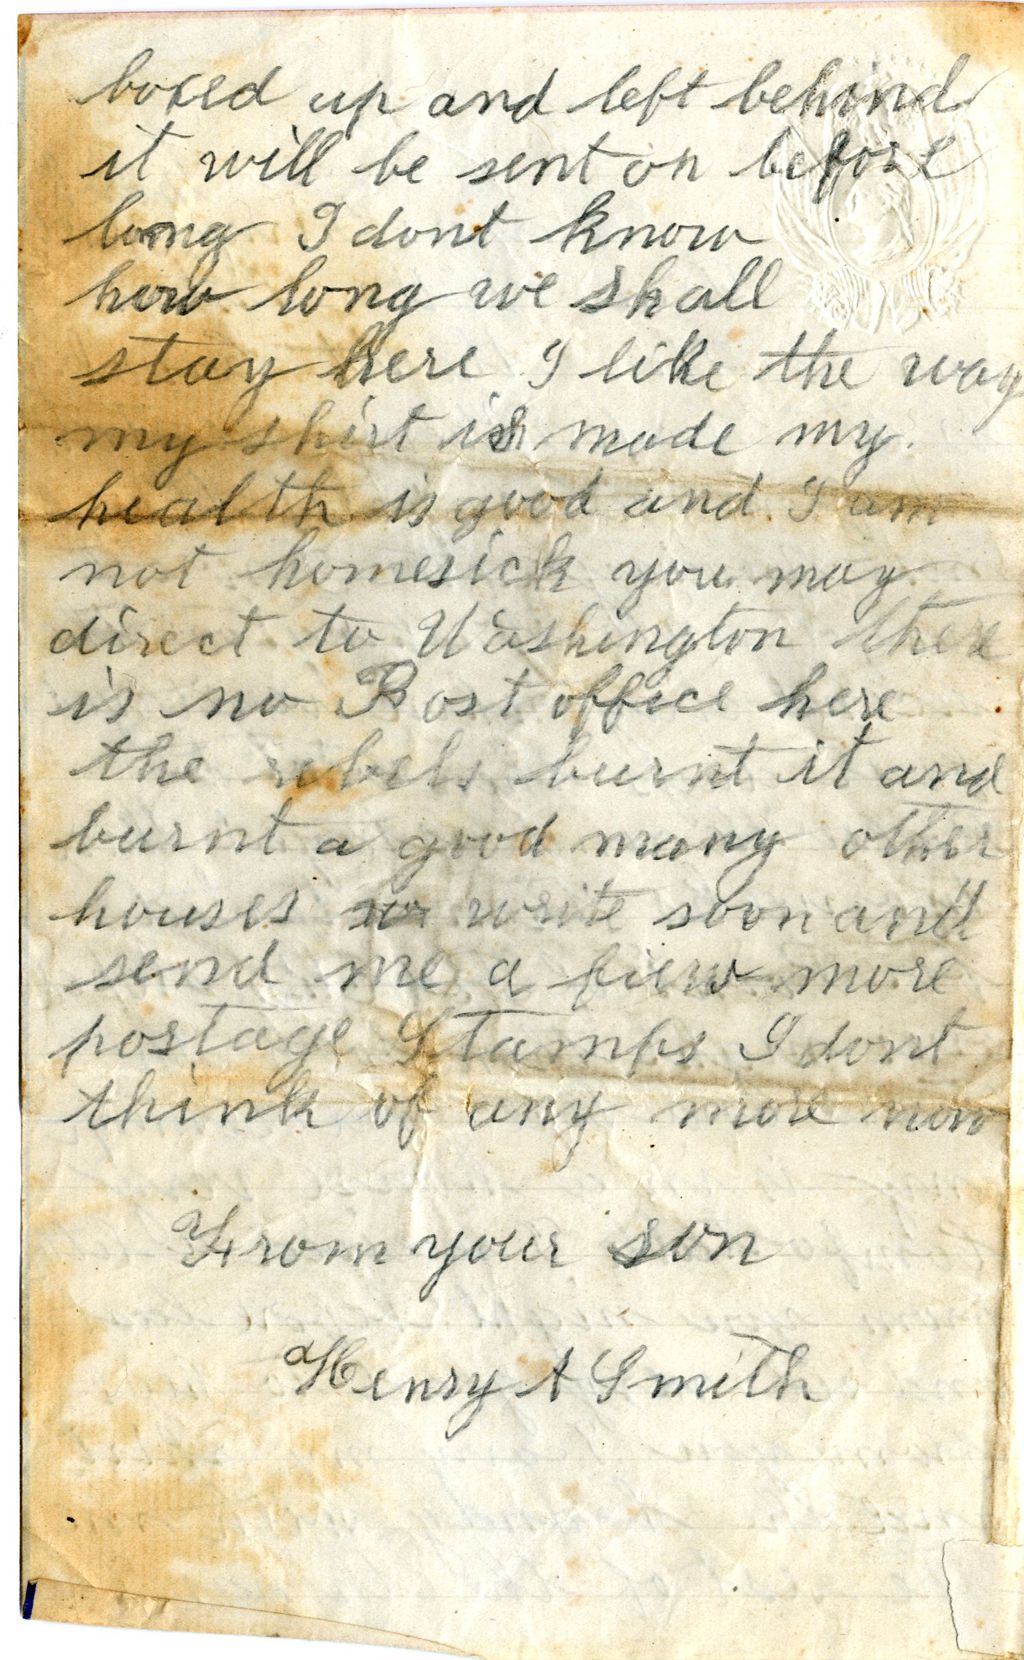 boxed up and left behind
it will be sent on before
long I dont know
how long we shall
stay here I like the way
my shirt is made my
health is good and I am
not homesick you may
direct to Washington there
is no Post office here
the rebels burnt it and
burnt a good many other
houses write soon and
send me a fiew more
postage Stamps I dont
think of any more now
From your son
Henry A Smith